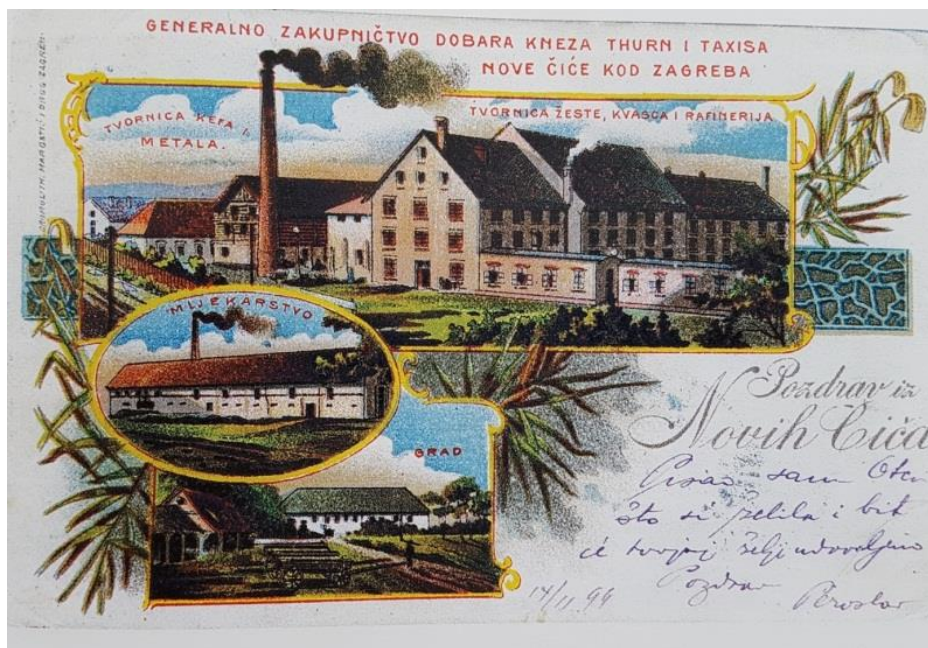 GENERALNO ZAKUPNIČTVO DOBARA KNEZA THURN I TAXISA
NOVE ČIĆE KOD ZAGREBA
TVORNICA KEFA I
METALA.
TVORNICA ŽESTE, KVASCA I RAFINERIJA
MLJEKARSTVO
GRAD
Pozdrav iz
Novih Čiča
Pisao sam Otcu
što si želila i bit
će tvojoj želji udovoljeno
Pozdrav